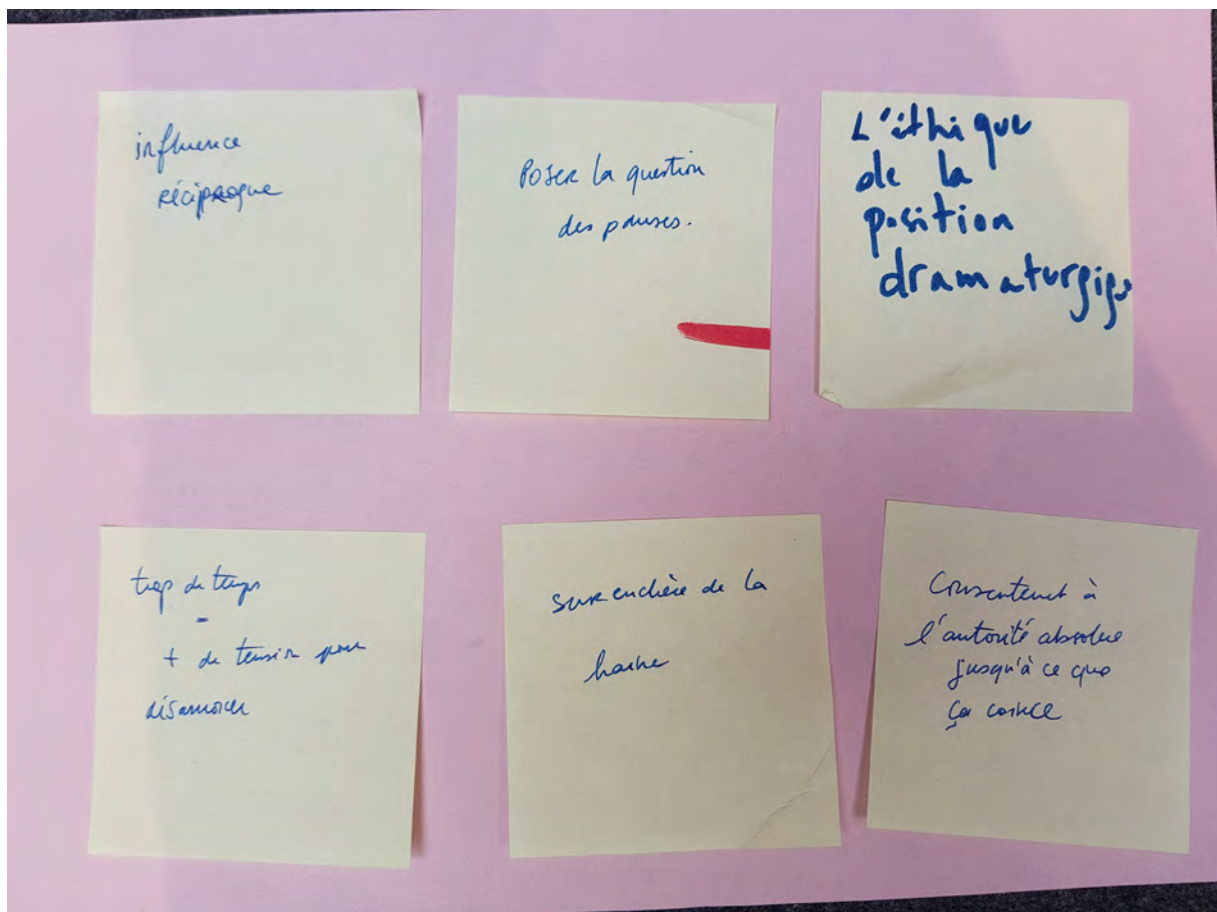 influence
réciproque
Poser la question
des pauses.
L'éthique
de la
position
dramaturgique
trop de temps
=
+ de tension pour
désamorcer
surenchère de la
haine
Consentement à
l'autorité absolue
jusqu'à ce que
ça coince